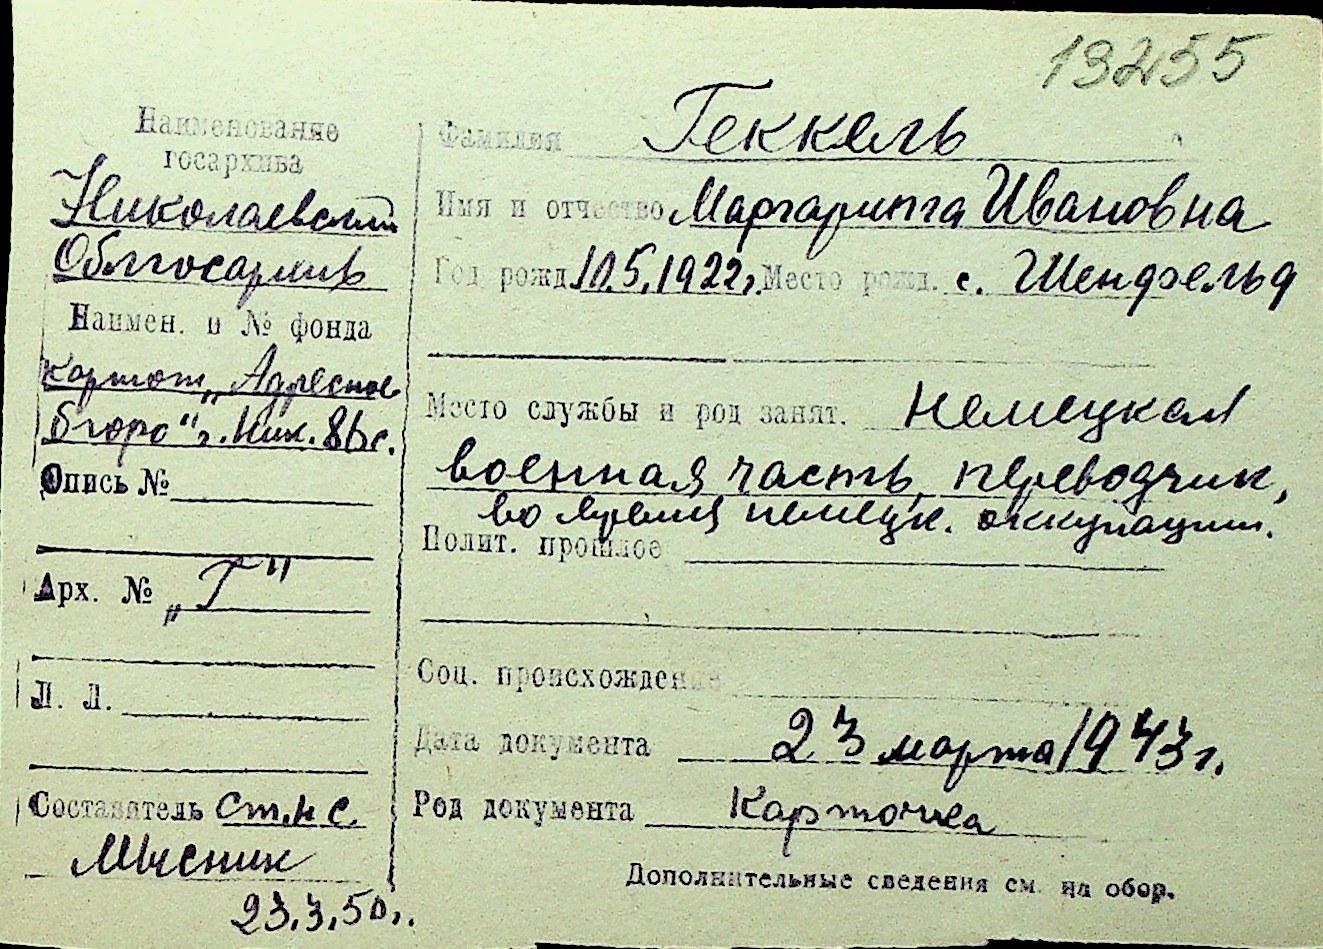 13255
Наименование
госархива
Николаевский
Облгосархив
Наимен. и № фонда
картот. „Адресное
бюро" г. Ник.
Опись №
Арх. № „Г"
Л. Л.
Составитель ст. н. с.
Мысник
23.3.50 г.
Фамилия Геккель
Имя и отчество Маргарита Ивановна
Год рожд. 10.5.1922 г. Место рожд. с. Шенфельд
Место службы и род занят. немецкая
военная часть, переводчик,
во время немецк. оккупации.
Полит. прошлое
Соц. происхождение
Дата документа 23 марта 1943 г.
Род документа Карточка
Дополнительные сведения см. на обор.